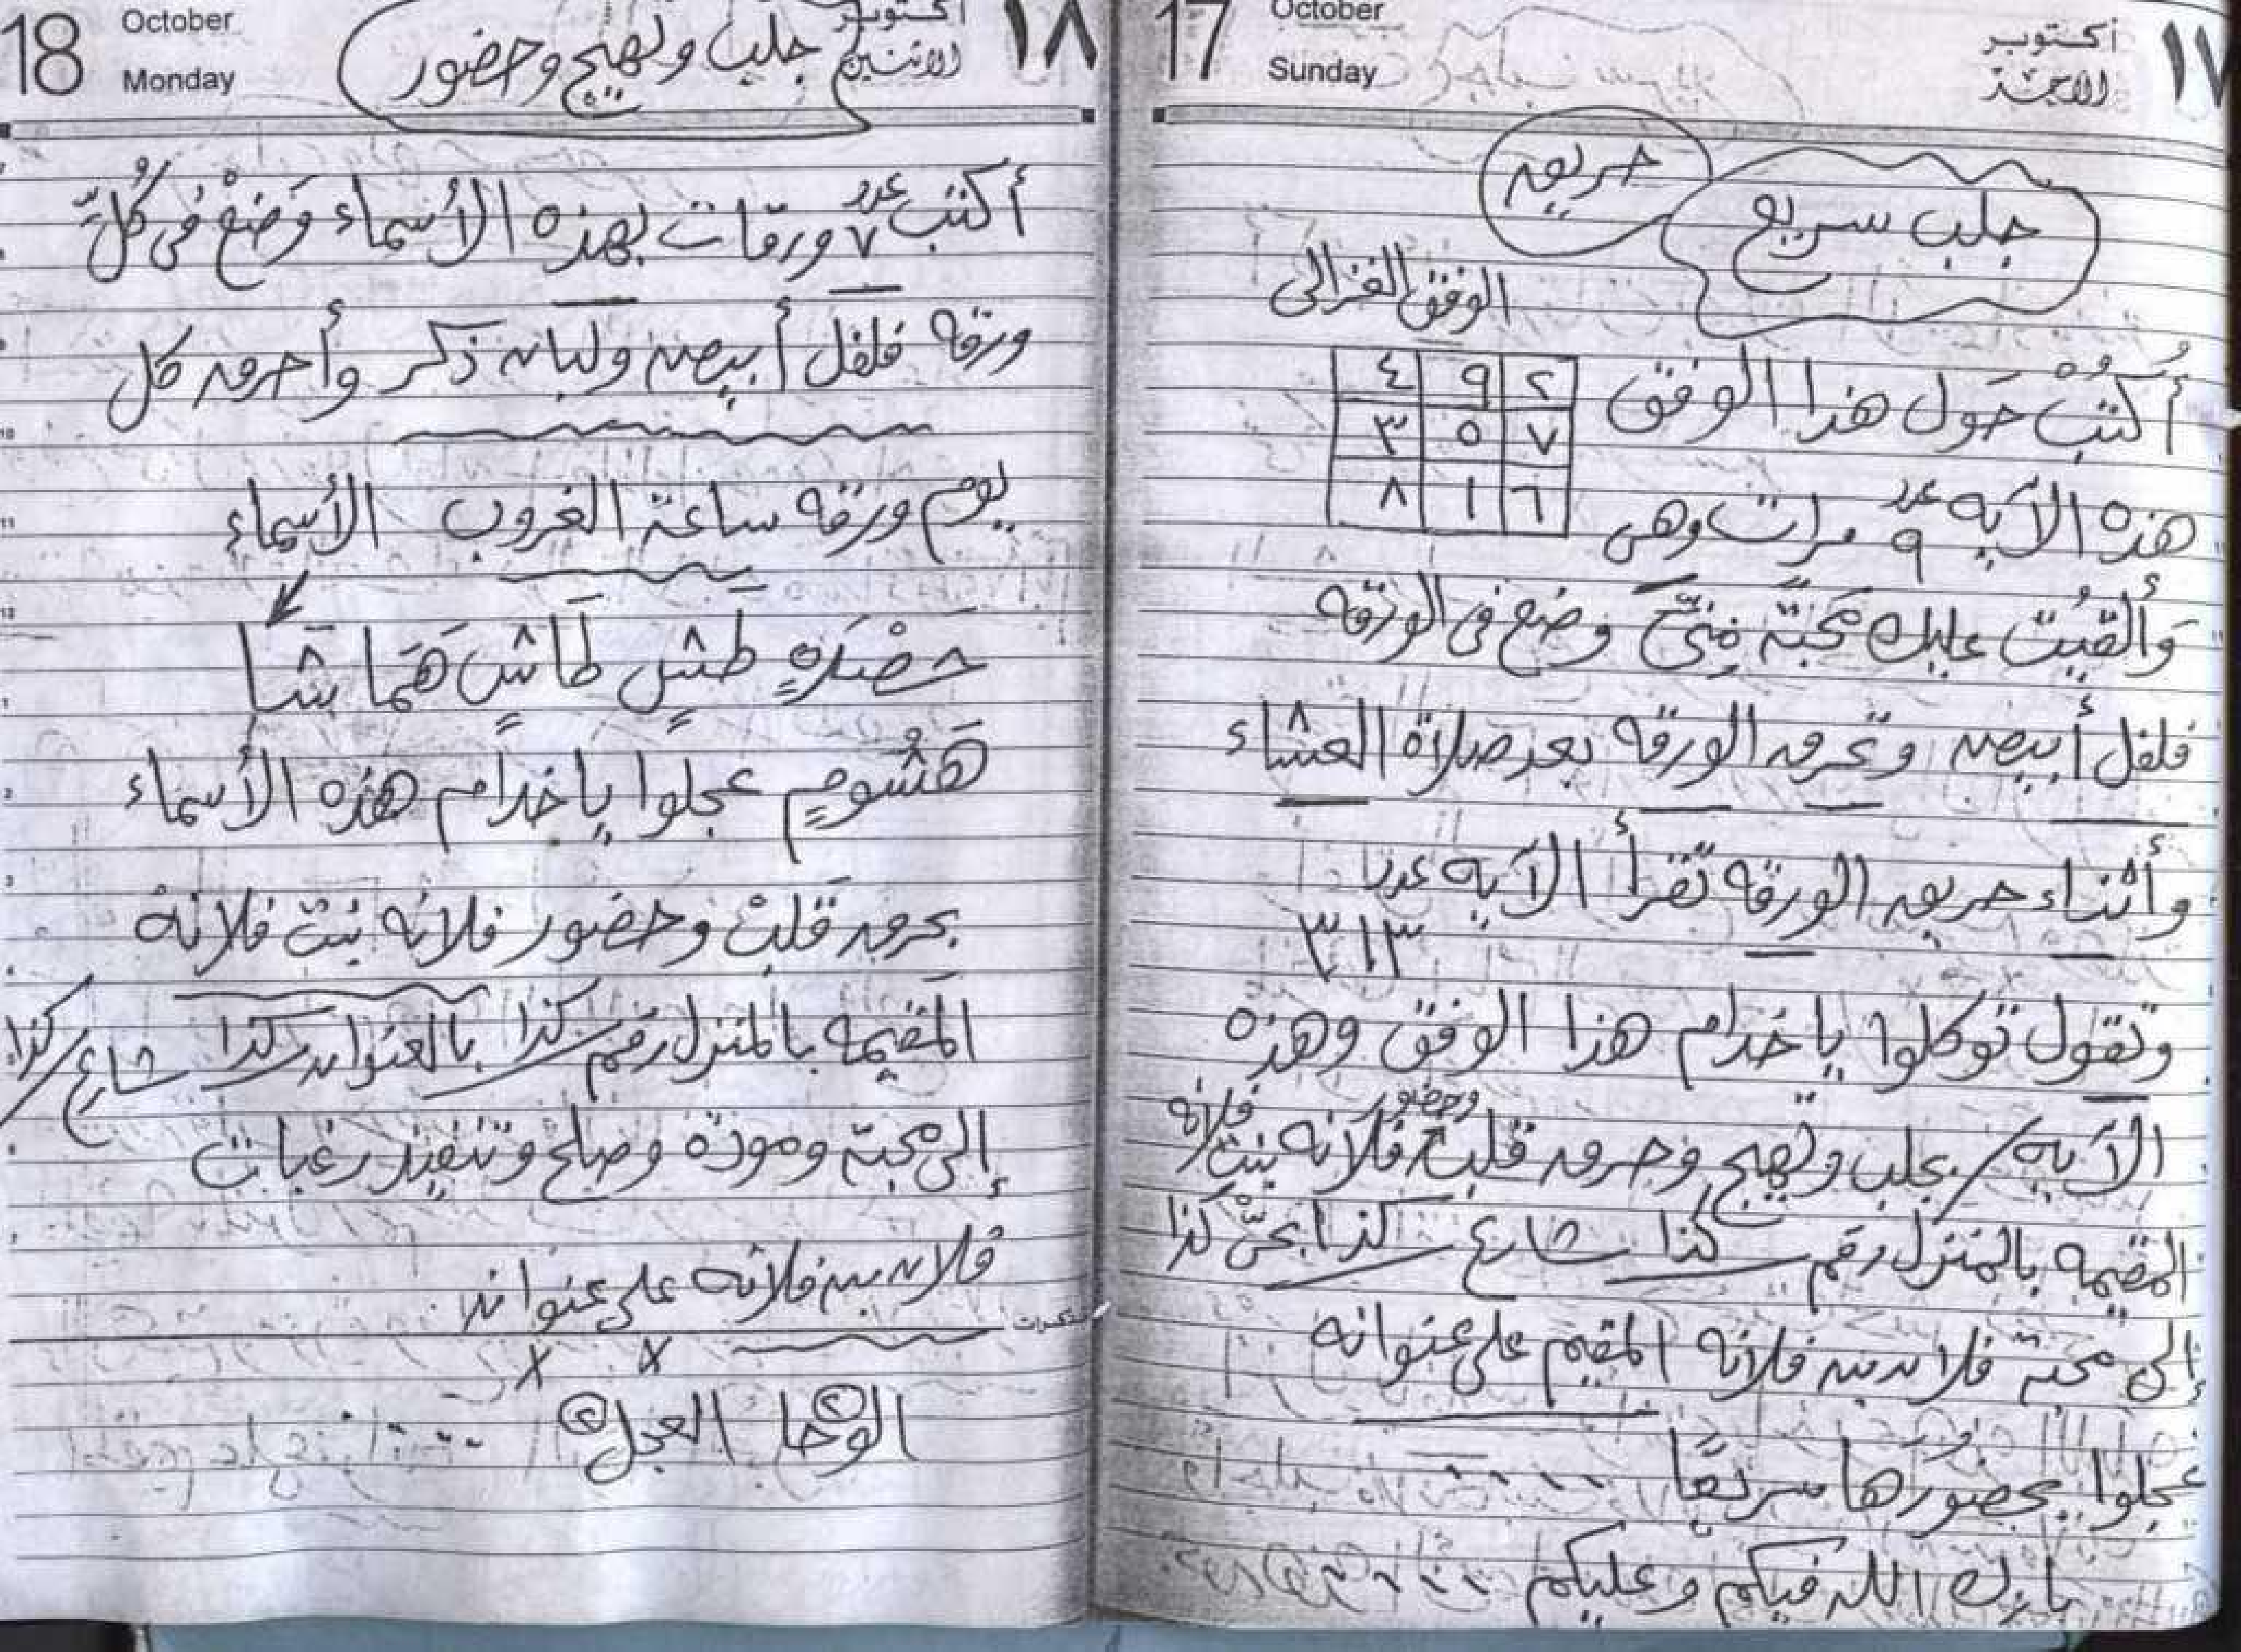 ١٧
أكتوبر
الأحد
October
Sunday
17
حريق
جلب سريع
الوفق الغزالى
أُكتبُ حَول هذا الوفق
٢ ٩ ٤
٧ ٥ ٣
٦ ١ ٨
هذه الآيه عدد ٩ مرات وهى
وَألقيُت عليك محبَّة مِنىَّ وضع فى الورقه
فلفل أبيض وتحرق الورقه بعد صلاة العشاء
وأثناء حريق الورقه تقرأ الآيه عدد
٣١٣
وتقول توكلوا ياخدام هذا الوفق وهذه
الآيه / بجلب وتهيج وحرق قلب وحضور فلانه بنت فلانه
المقيمه بالمنزل رقم كذا شارع كذا بحىّ كذا
إلى محبة فلان بن فلانه المقيم على عنوانه
عجلوا بحضورها سريعًا
بارك الله فيكم وعليكم
18
October
Monday
أكتوبر
الاثنين
١٨
جلب وتهيج وحضور
أكتب عدد ٧ ورقات بهذه الأسماء وَضعْ فى كُلِّ
ورقه فلفل أبيض ولبان ذكر وأحرق كل
يوم ورقه ساعة الغروب الأسماء
طَشٍ طَاشٍ هَما شَا
هَشُومٍ عجلوا ياخدام هذه الأسماء
بحرق قَلبْ وحضور فلانه بنت فلانة
المقيمه بالمنزل رقم كذا بالعنوان كذا شارع كذا
إلى محبة ومودة وصلح وتنفيذ رغبات
فلان بن فلانه على عنوانه
x x
الوحا ٢ العجل ٢